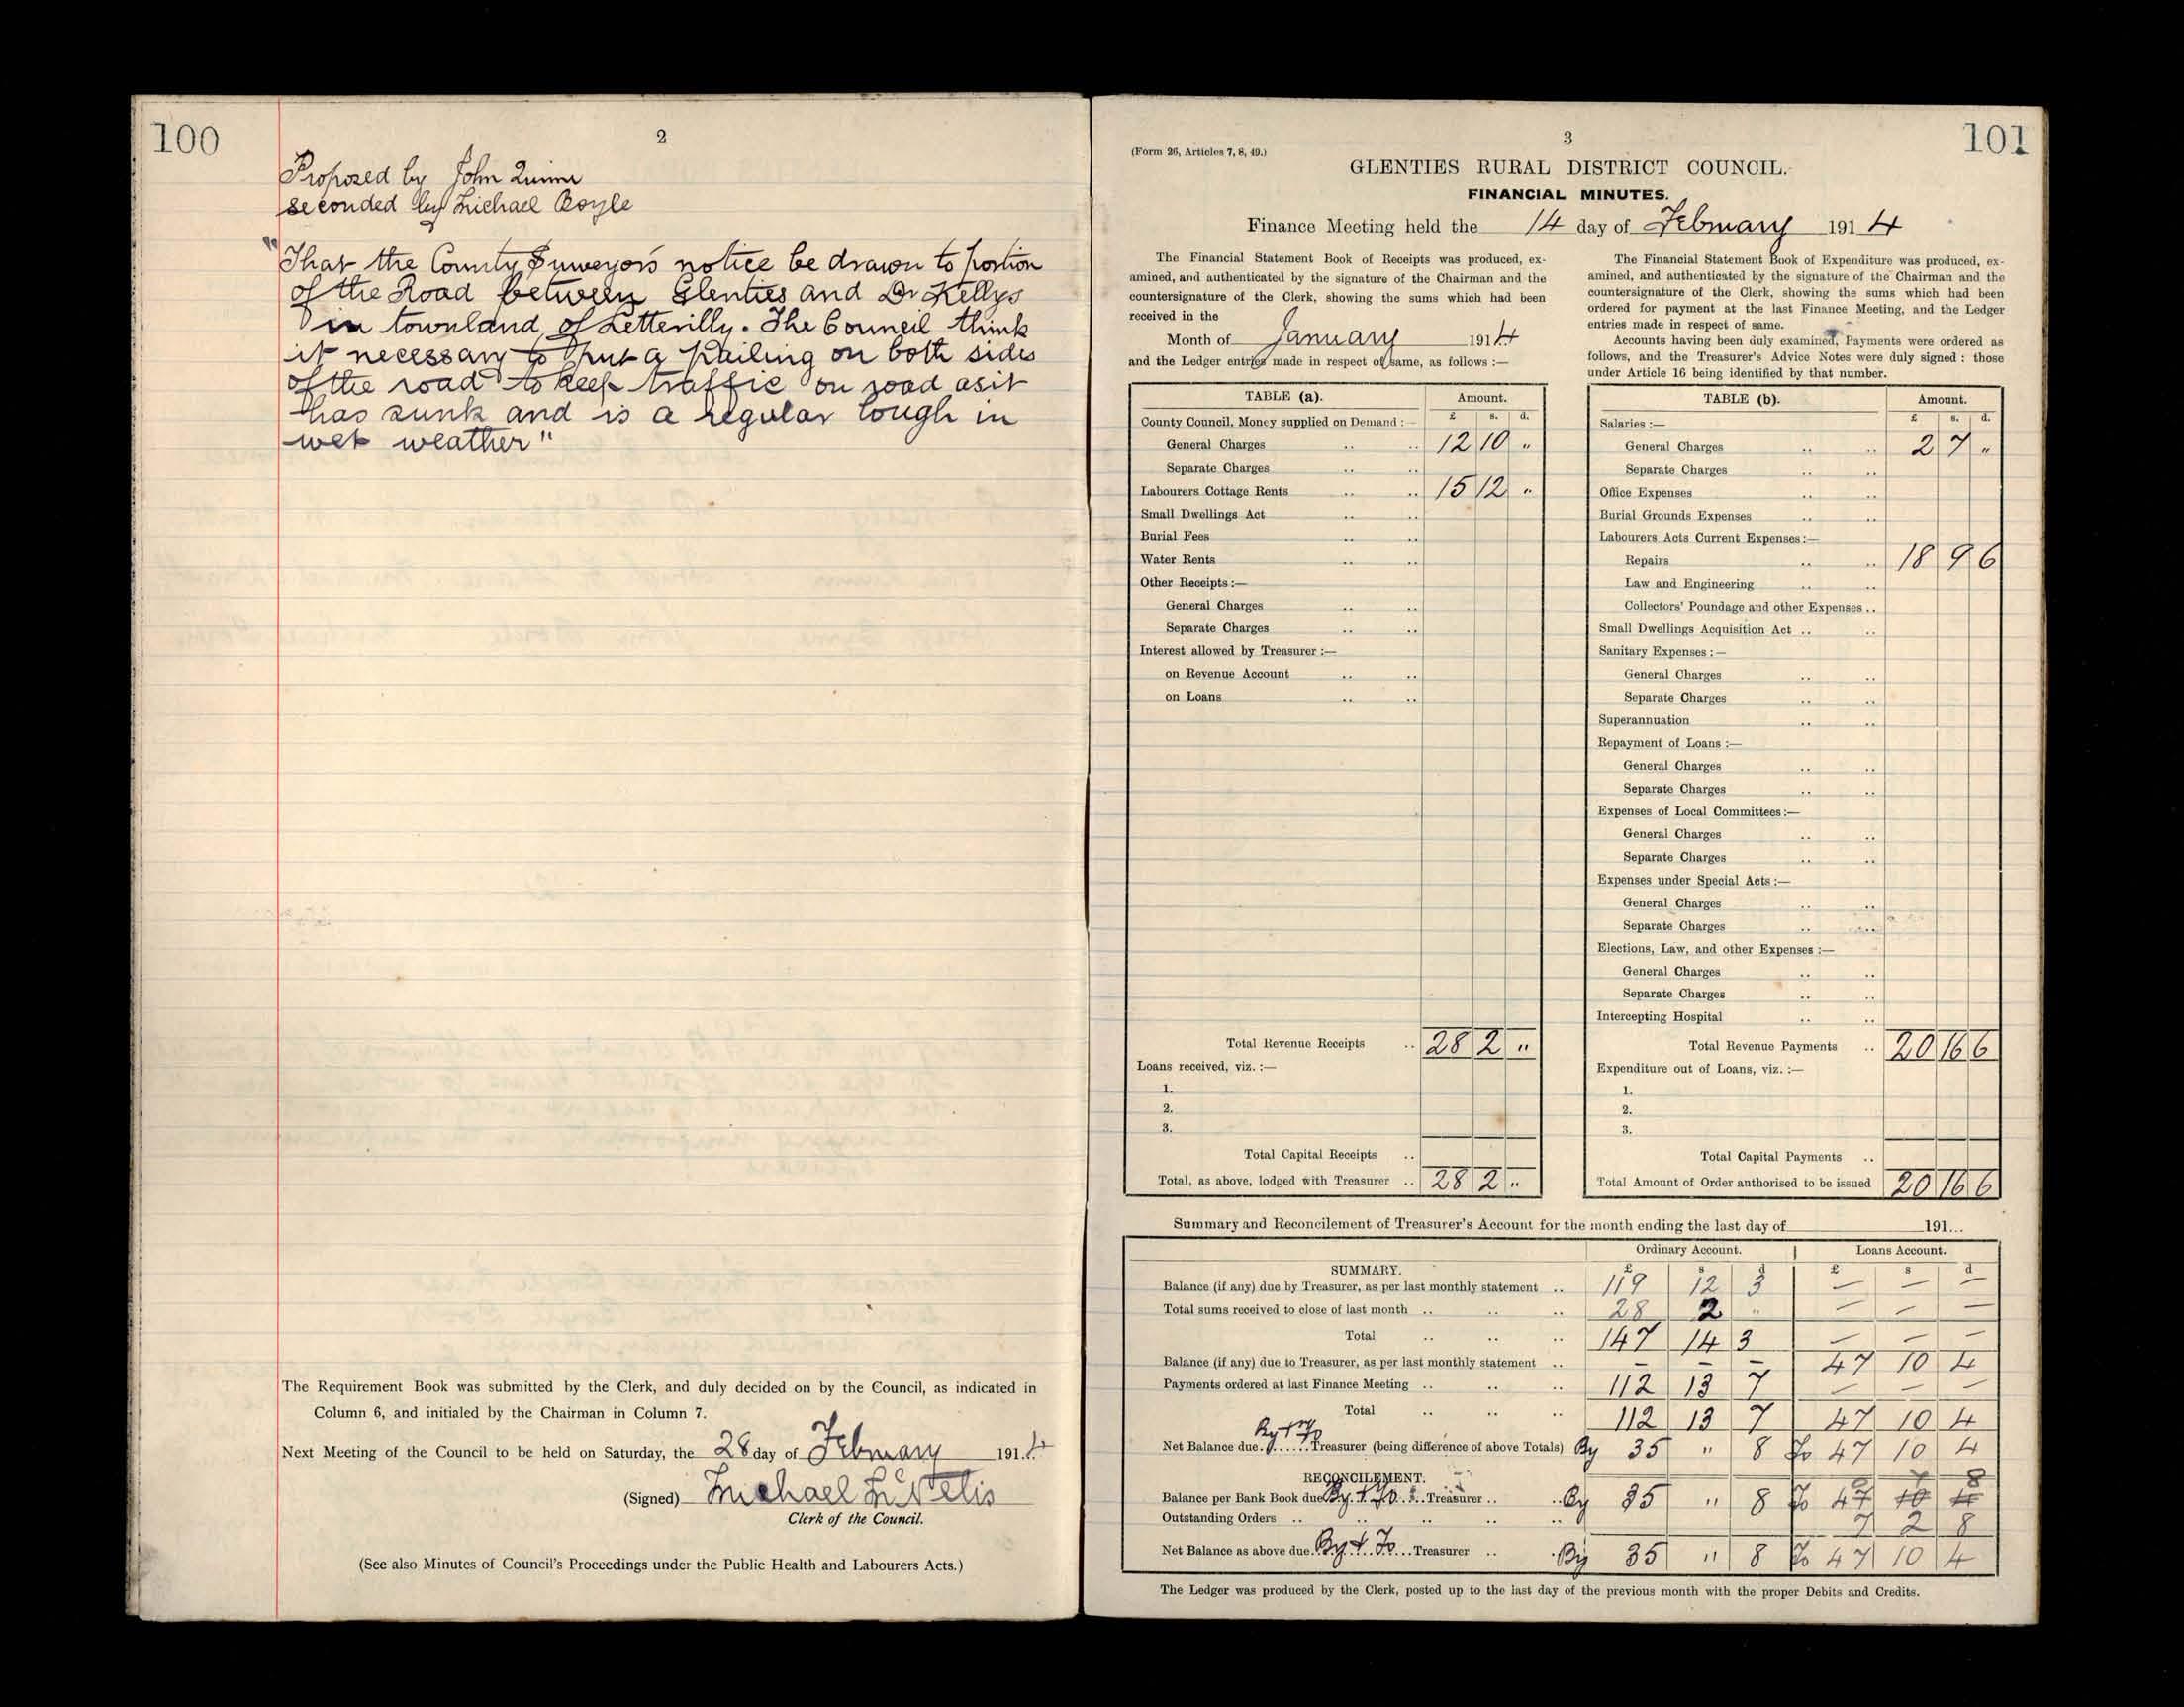 100
2
Proposed by John Quinn
seconded by Michael Boyle
"That the County Surveyor's notice be drawn to portion
of the Road between Glenties and Dr Kellys
in townland of Letterilly. The Council think
it necessary to put a pailing on both sides
of the road to keep traffic on road as it
has sunk and is a regular lough in
wet weather"
The Requirement Book was submitted by the Clerk, and duly decided on by the Council, as indicated in
Column 6, and initialed by the Chairman in Column 7.
Next Meeting of the Council to be held on Saturday, the 28 day of February 1914
(Signed) Michael McNelis
Clerk of the Council.
(See also Minutes of Council's Proceedings under the Public Health and Labourers Acts.)
3
101
(Form 26, Articles 7, 8, 49.)
GLENTIES RURAL DISTRICT COUNCIL.
FINANCIAL MINUTES.
Finance Meeting held the 14 day of February 1914
The Financial Statement Book of Receipts was produced, ex-
amined, and authenticated by the signature of the Chairman and the
countersignature of the Clerk, showing the sums which had been
received in the
Month of January 1914
and the Ledger entries made in respect of same, as follows :—
TABLE (a). Amount.
£ s. d.
County Council, Money supplied on Demand :—
General Charges .. .. 12 10 "
Separate Charges .. ..
Labourers Cottage Rents .. .. 15 12 "
Small Dwellings Act .. ..
Burial Fees .. ..
Water Rents .. ..
Other Receipts :—
General Charges .. ..
Separate Charges .. ..
Interest allowed by Treasurer :—
on Revenue Account .. ..
on Loans .. ..
Total Revenue Receipts .. 28 2 "
Loans received, viz. :—
1.
2.
3.
Total Capital Receipts ..
Total, as above, lodged with Treasurer .. 28 2 "
The Financial Statement Book of Expenditure was produced, ex-
amined, and authenticated by the signature of the Chairman and the
countersignature of the Clerk, showing the sums which had been
ordered for payment at the last Finance Meeting, and the Ledger
entries made in respect of same.
Accounts having been duly examined, Payments were ordered as
follows, and the Treasurer's Advice Notes were duly signed : those
under Article 16 being identified by that number.
TABLE (b). Amount.
£ s. d.
Salaries :—
General Charges .. .. 2 7 "
Separate Charges .. ..
Office Expenses .. ..
Burial Grounds Expenses .. ..
Labourers Acts Current Expenses :—
Repairs .. .. 18 9 6
Law and Engineering .. ..
Collectors' Poundage and other Expenses ..
Small Dwellings Acquisition Act .. ..
Sanitary Expenses :—
General Charges .. ..
Separate Charges .. ..
Superannuation .. ..
Repayment of Loans :—
General Charges .. ..
Separate Charges .. ..
Expenses of Local Committees :—
General Charges .. ..
Separate Charges .. ..
Expenses under Special Acts :—
General Charges .. ..
Separate Charges .. ..
Elections, Law, and other Expenses :—
General Charges .. ..
Separate Charges .. ..
Intercepting Hospital .. ..
Total Revenue Payments .. 20 16 6
Expenditure out of Loans, viz. :—
1.
2.
3.
Total Capital Payments ..
Total Amount of Order authorised to be issued 20 16 6
Summary and Reconcilement of Treasurer's Account for the month ending the last day of 191...
Ordinary Account. Loans Account.
SUMMARY. £ s d £ s d
Balance (if any) due by Treasurer, as per last monthly statement .. 119 12 3 — — —
Total sums received to close of last month .. .. .. 28 2 " — — —
Total .. .. .. 147 14 3 — — —
Balance (if any) due to Treasurer, as per last monthly statement .. — — — 47 10 4
Payments ordered at last Finance Meeting .. .. .. 112 13 7 — — —
Total .. .. .. 112 13 7 47 10 4
Net Balance due By & To Treasurer (being difference of above Totals) By 35 " 8 To 47 10 4
RECONCILEMENT.
Balance per Bank Book due By & To Treasurer .. .. By 35 " 8 To 47 10 4
Outstanding Orders .. .. .. .. .. 7 2 8
Net Balance as above due By & To Treasurer .. By 35 " 8 To 47 10 4
The Ledger was produced by the Clerk, posted up to the last day of the previous month with the proper Debits and Credits.